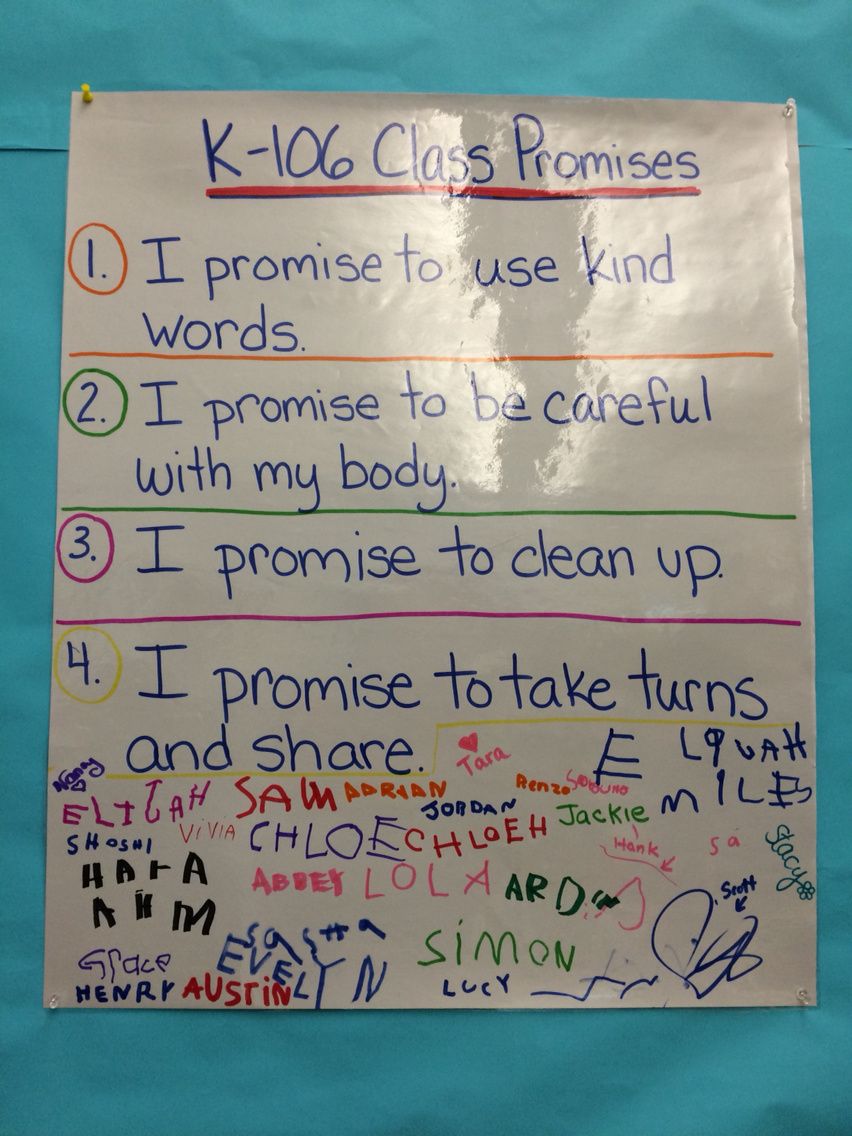 K-106 Class Promises
1. I promise to use kind
words.
2. I promise to be careful
with my body.
3. I promise to clean up.
4. I promise to take turns
and share.
Tara
Nancy
ELIJAH
SAM
ADRIAN
Renzo
MILES
SHOSHI
ViViA
CHLOE
CHLOEH
JORDAN
Jackie
Hank
Sa
Stacy
ABBEY
LOLA
Scott
Grace
EVELYN
SiMON
HENRY
AUSTiN
LUCY